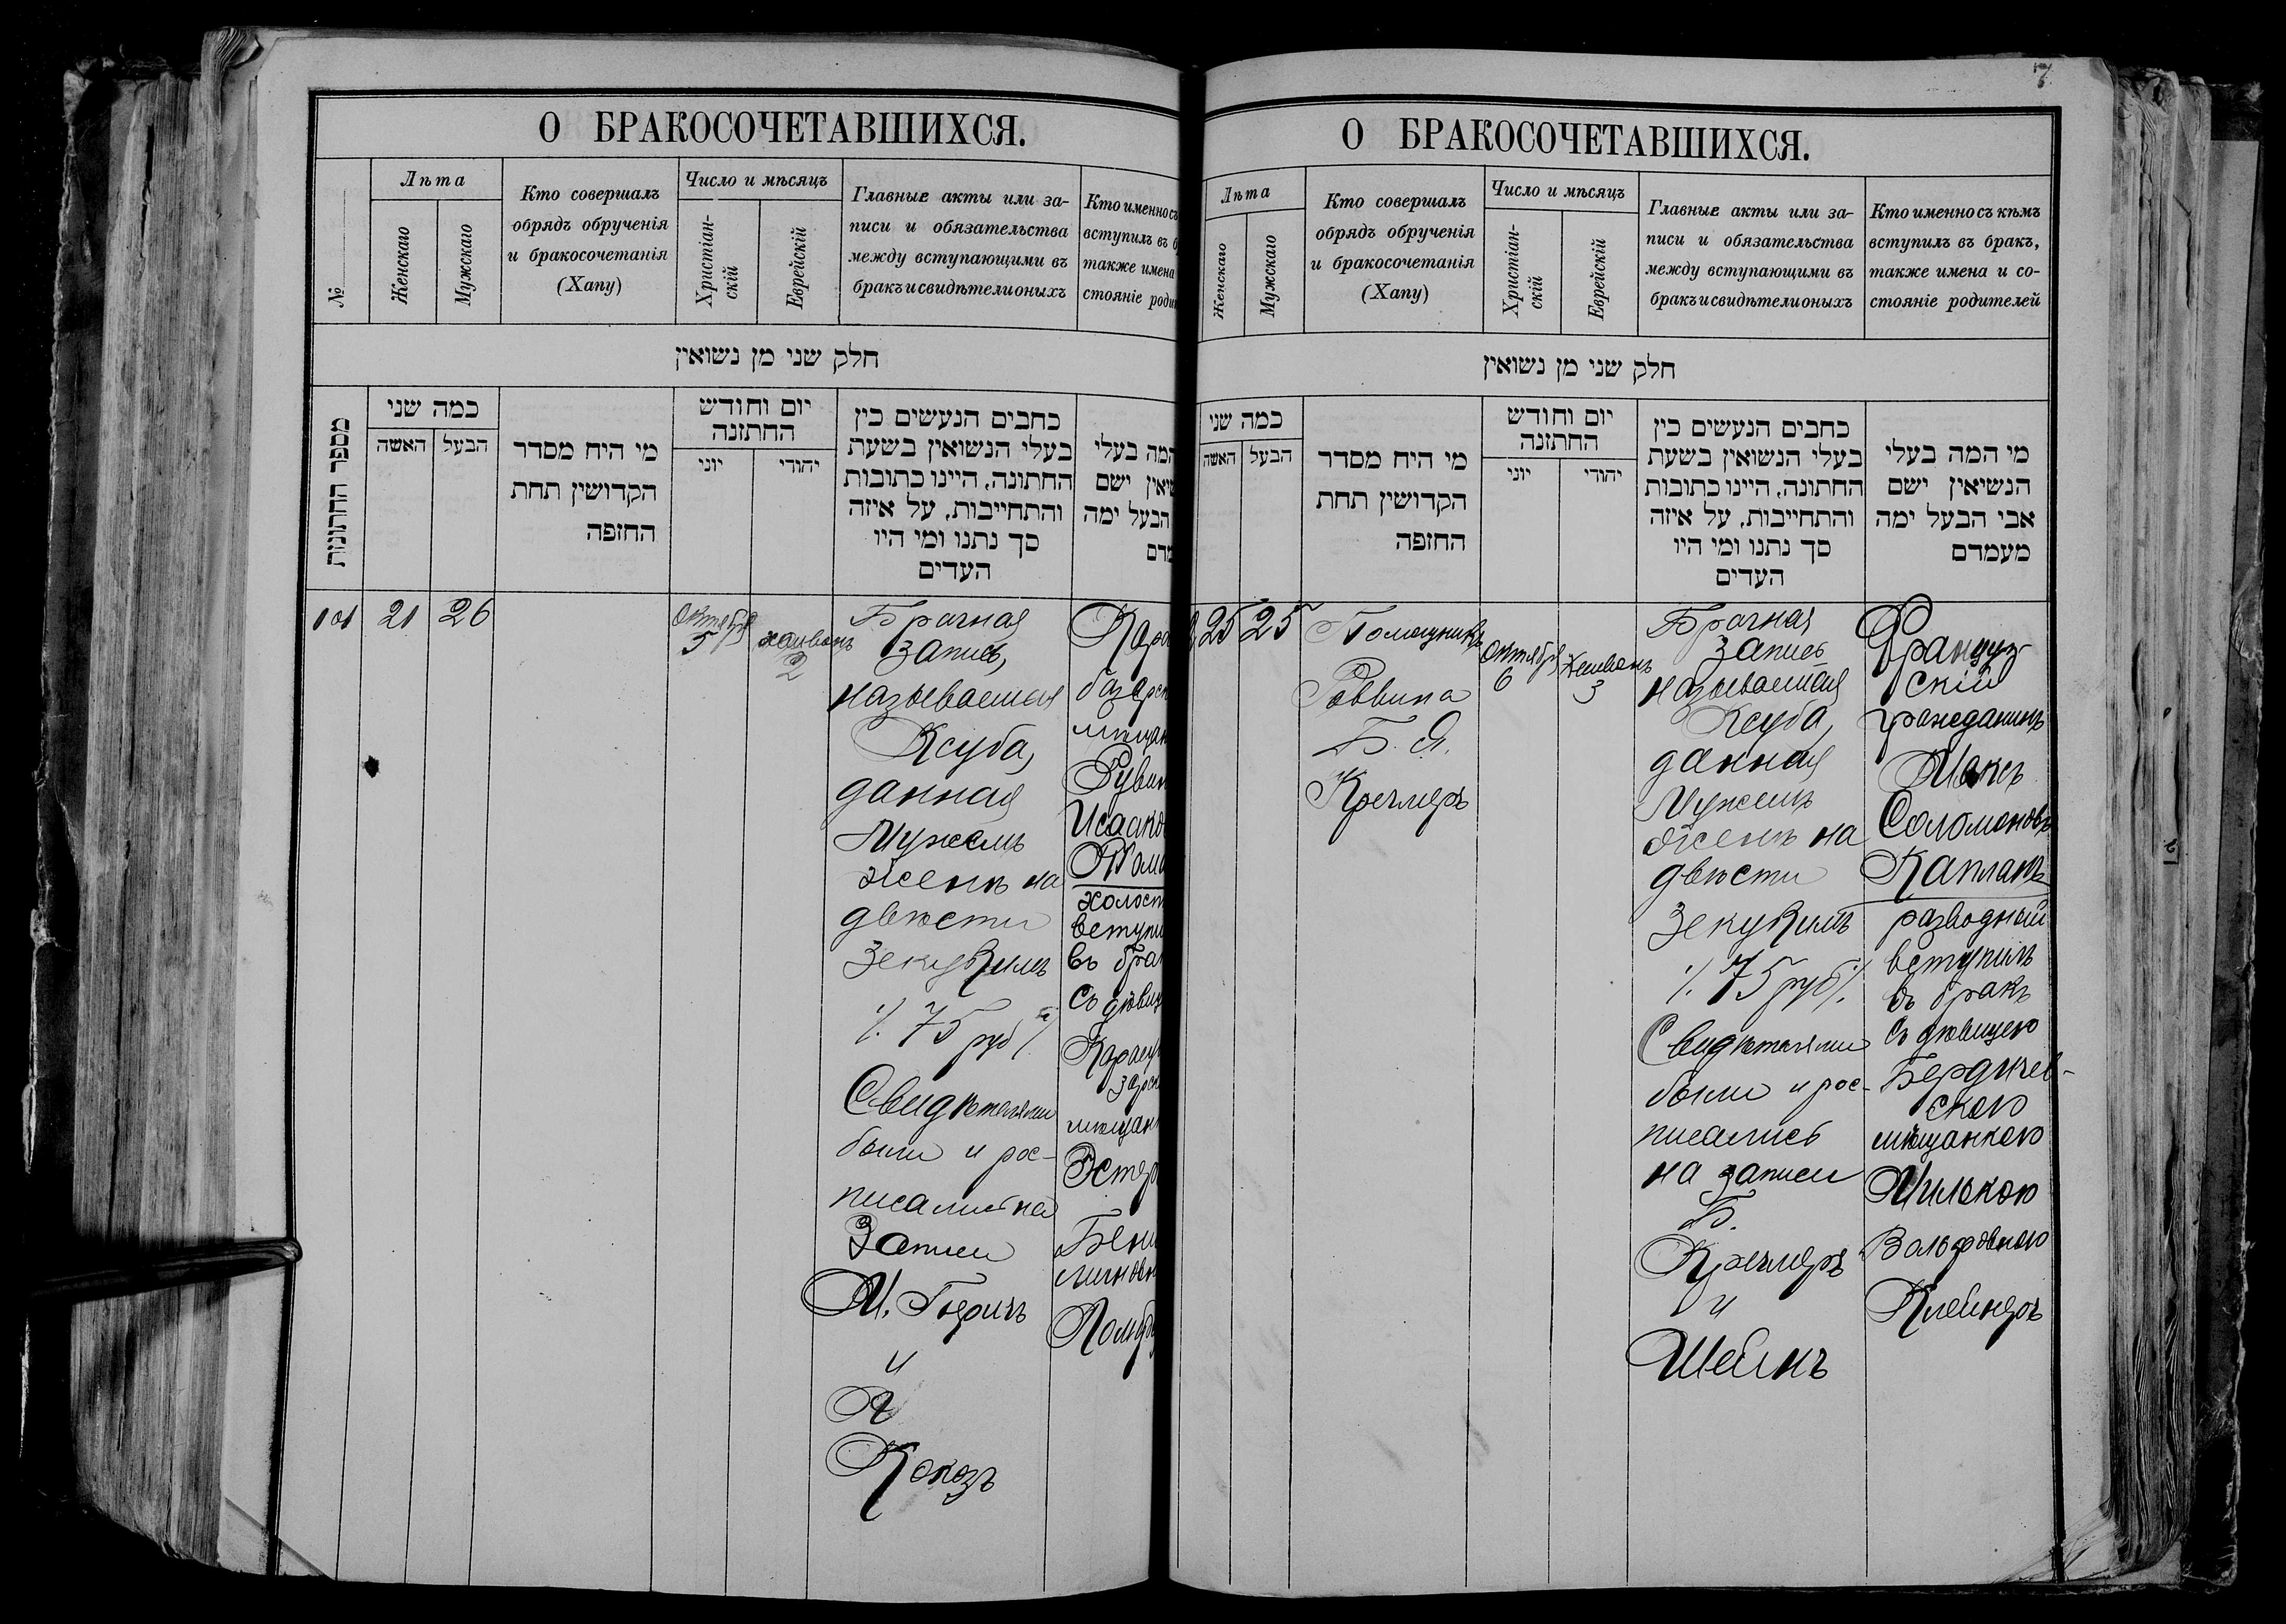 О БРАКОСОЧЕТАВШИХСЯ.
№
Лѣта
Женскаго
Мужскаго
Кто совершалъ
обрядъ обрученія
и бракосочетанія
(Хапу)
Число и мѣсяцъ
Христіан-
скій
Еврейскій
Главные акты или за-
писи и обязательства
между вступающими въ
бракъ и свидѣтели оныхъ
Кто именно съ
вступилъ въ б
также имена
стояніе роди
חלק שני מן נשואין
מספר החתונות
כמה שני
האשה
הבעל
מי היח מסדר
הקדושין תחת
החופה
יום וחודש
החתונה
יוני
יהודי
כחבים הנעשים כין
בעלי הנשואין בשעת
החתונה, היינו כתובות
והתחייבות, על איזה
סך נתנו ומי היו
העדים
המה בעלי
שיאין ישם
הבעל ימה
מדם
101
21
26
Октября
5
хешванъ
2
Брачная
запись,
называемая
Ксуба,
данная
Мужемъ
женѣ на
двѣсти
Зекукимъ
/. 75 руб /.
Свидѣтелями
были и рос-
писались на
Записи
М.
и
Я
Кокозъ
Кара
базарск
мѣщан
Рувин
Исаако
холост
вступи
въ бра
съ дѣвиц
Карасу
зарск
мѣщанк
Эстер
Бени
7
О БРАКОСОЧЕТАВШИХСЯ.
Лѣта
Женскаго
Мужскаго
Кто совершалъ
обрядъ обрученія
и бракосочетанія
(Хапу)
Число и мѣсяцъ
Христіан-
скій
Еврейскій
Главные акты или за-
писи и обязательства
между вступающими въ
бракъ и свидѣтели оныхъ
Кто именно съ кѣмъ
вступилъ въ бракъ,
также имена и со-
стояніе родителей
חלק שני מן נשואין
כמה שני
האשה
הבעל
מי היח מסדר
הקדושין תחת
החופה
יום וחודש
החתונה
יוני
יהודי
כחבים הנעשים כין
בעלי הנשואין בשעת
החתונה, היינו כתובות
והתחייבות, על איזה
סך נתנו ומי היו
העדים
מי המה בעלי
הנשיאין ישם
אבי הבעל ימה
מעמדם
25
25
Помощникъ
Раввина
Б. Я.
Кречмеръ
Октября
6
Хешванъ
3
Брачная
запись
называемая
Ксуба,
данная
Мужемъ
женѣ на
двѣсти
Зекукимъ
/. 75 руб /.
Свидѣтелями
были и рос-
писались
на записи
Б.
Кречмеръ
и
Шейнъ
Француз-
скій
гражданинъ
Максъ
Соломоновъ
Капланъ
разводный
вступилъ
въ бракъ
съ дѣвицею
Бердичев-
скою
мѣщанкою
Милькою
Вольфовною
Клейнеръ